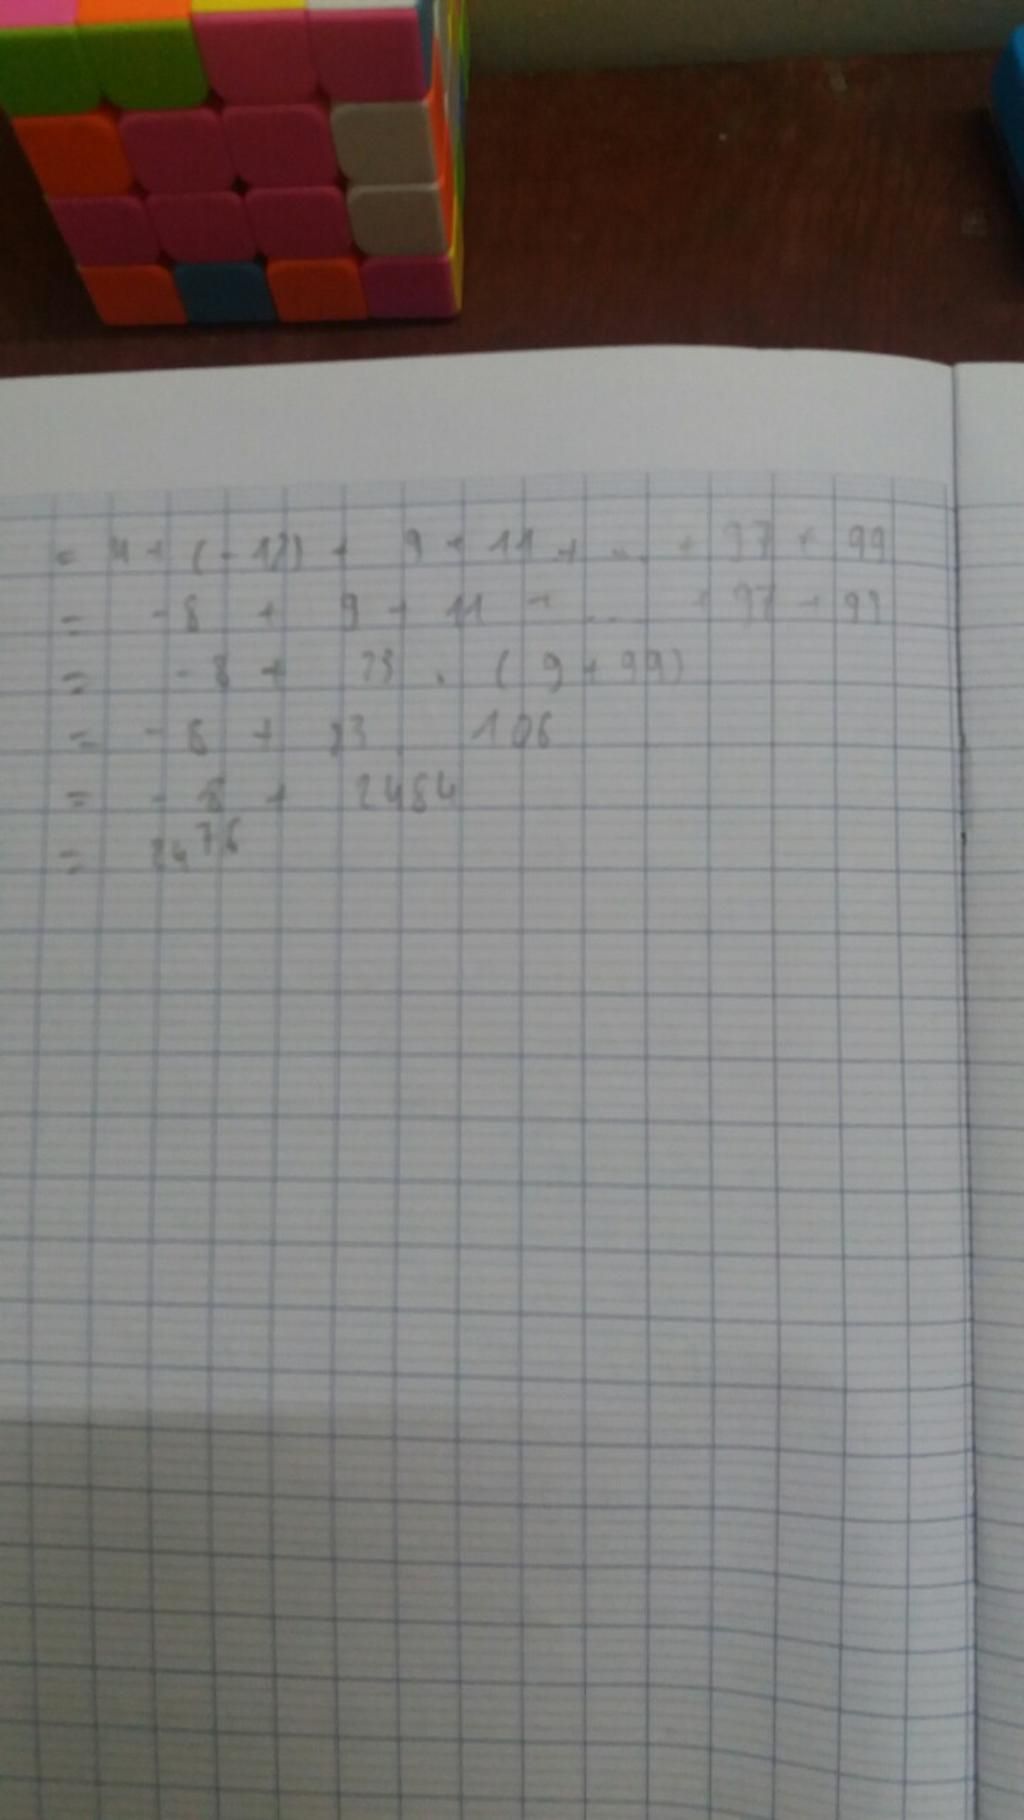 = 4 + (-12) + 9 + 11 + ... + 97 + 99
= -8 + 9 + 11 + ... + 97 + 99
= -8 + 23 . (9 + 99)
= -8 + 23 . 108
= -8 + 2484
= 2476